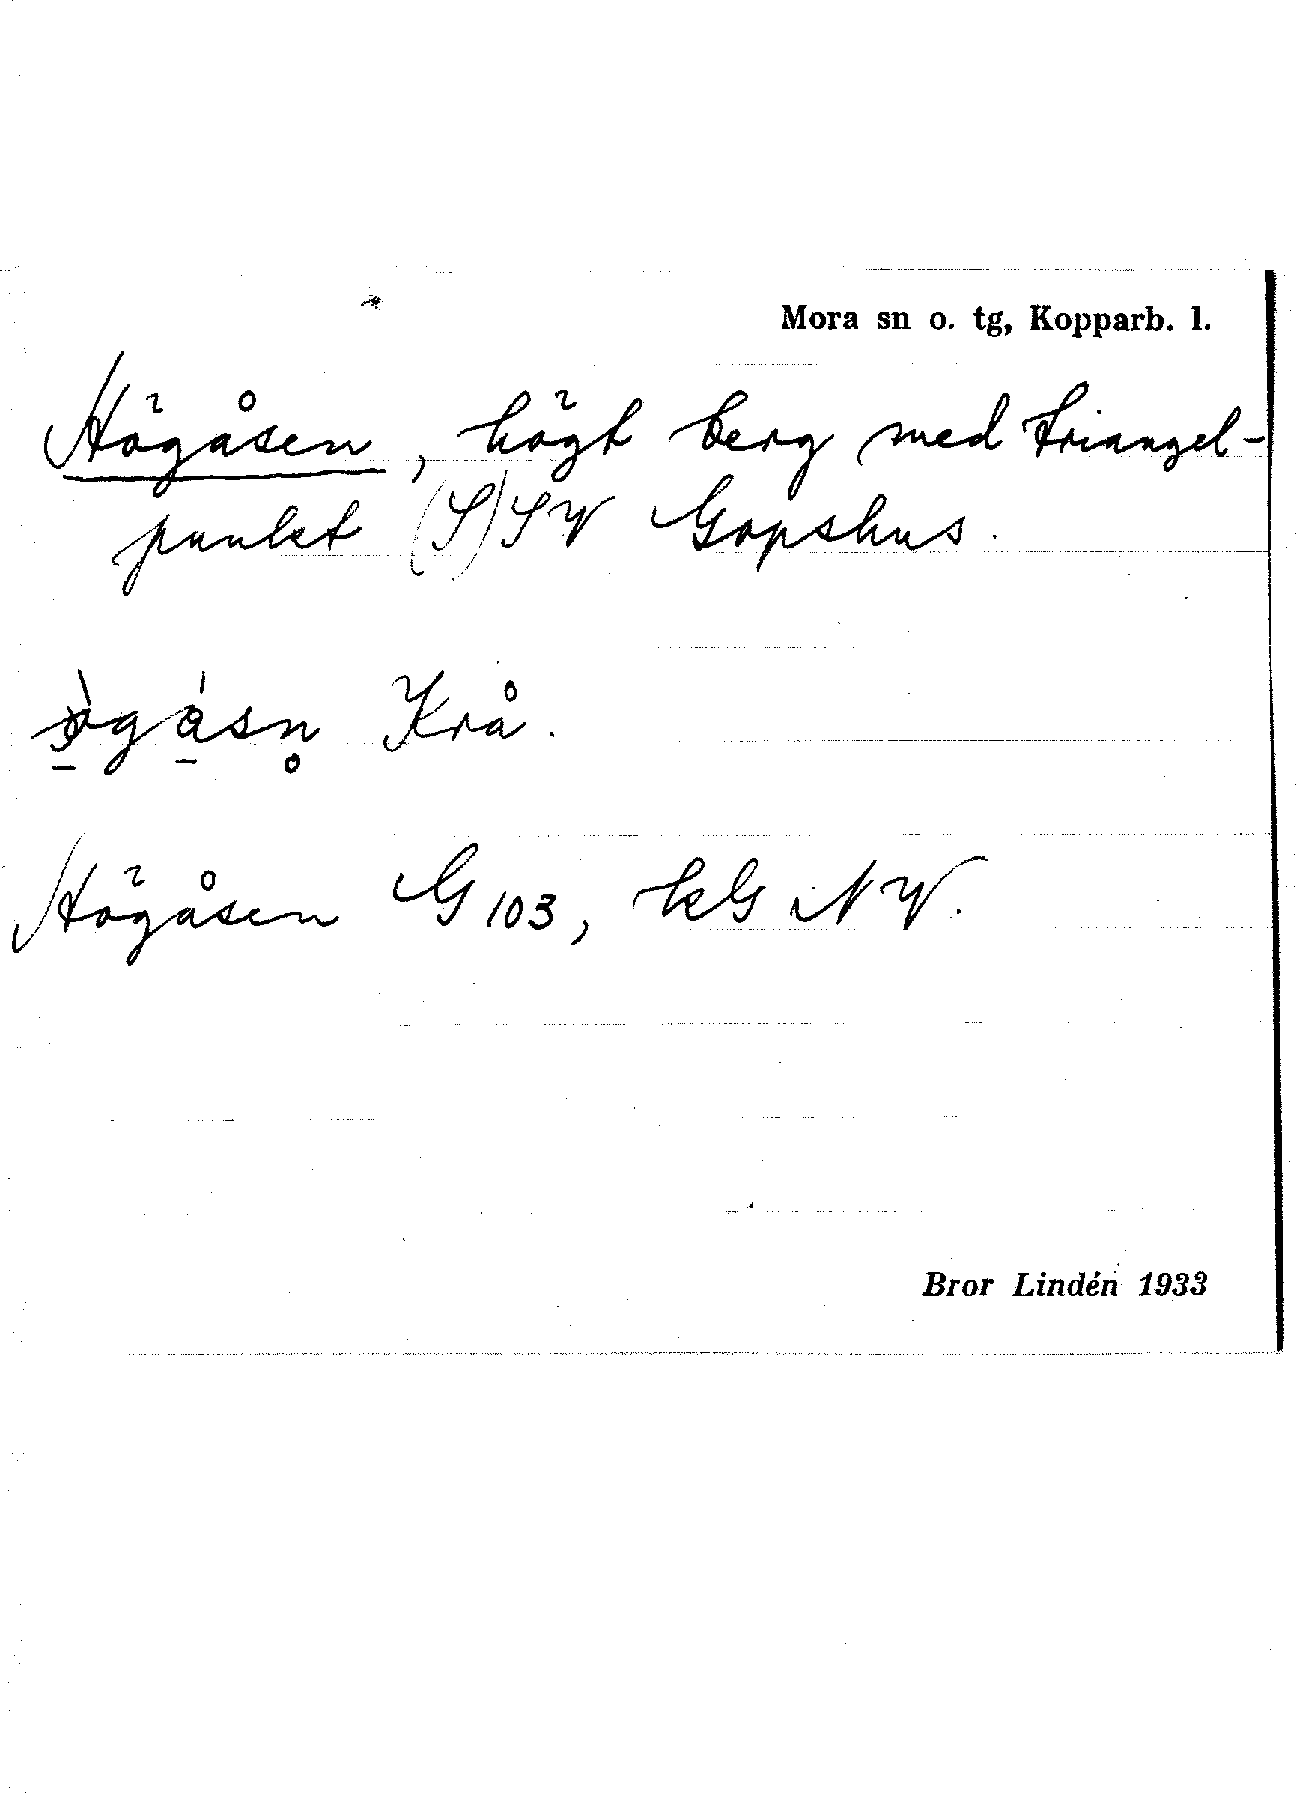 Mora sn o. tg, Kopparb. l.
Högåsen, högt berg med triangel-
punkt (S)SV Gopshus.
Krå.
Högåsen G 103, kG NV.
Bror Lindén 1933